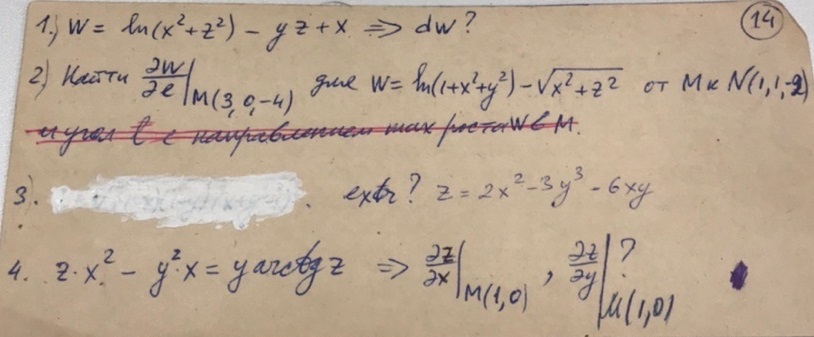 14
1.) W = ln(x²+z²) - yz + x ⇒ dw?
2) Найти ∂w/∂e|M(3,0,-4) для W = ln(1+x²+y²) - √x²+z² от M к N(1,1,-2)
и угол с направлением max роста W в M.
3). extr? z = 2x² - 3y³ - 6xy
4. z·x² - y²·x = y arctg z ⇒ ∂z/∂x|M(1,0), ∂z/∂y|M(1,0)?